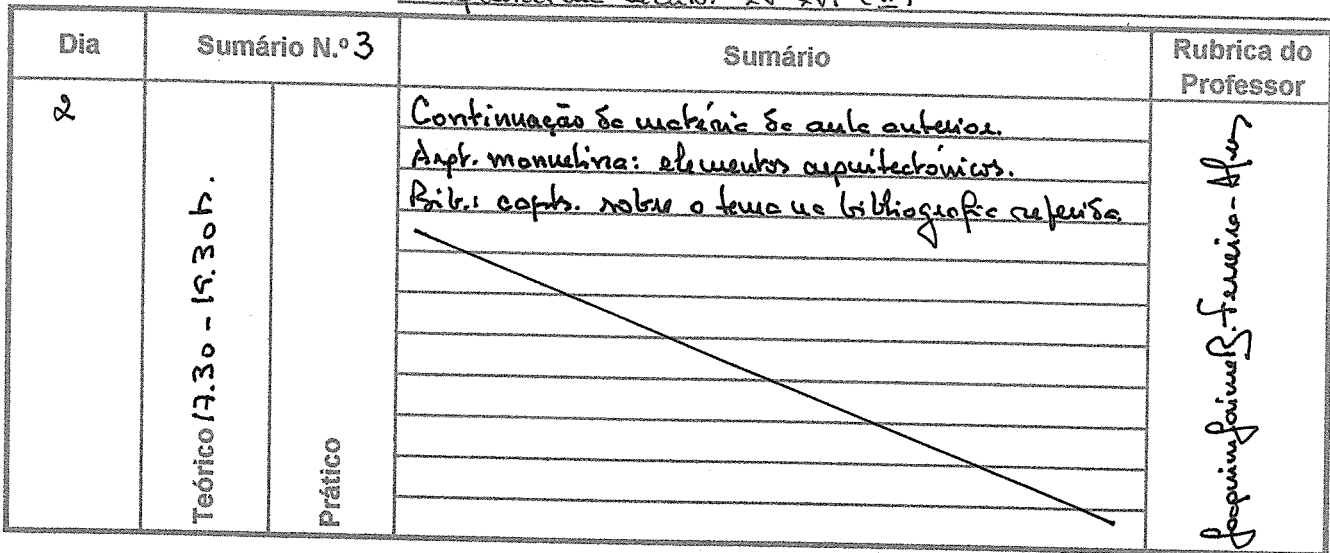 séculos XV-XVI (II)
Dia
Sumário N.º 3
Sumário
Rubrica do Professor
2
Teórico 17.30 - 19.30 h.
Prático
Continuação da matéria da aula anterior.
Arqt. manuelina: elementos arquitectónicos.
Bib.: capts. sobre o tema na bibliografia referida
Joaquim Jaime B. Ferreira-Alves